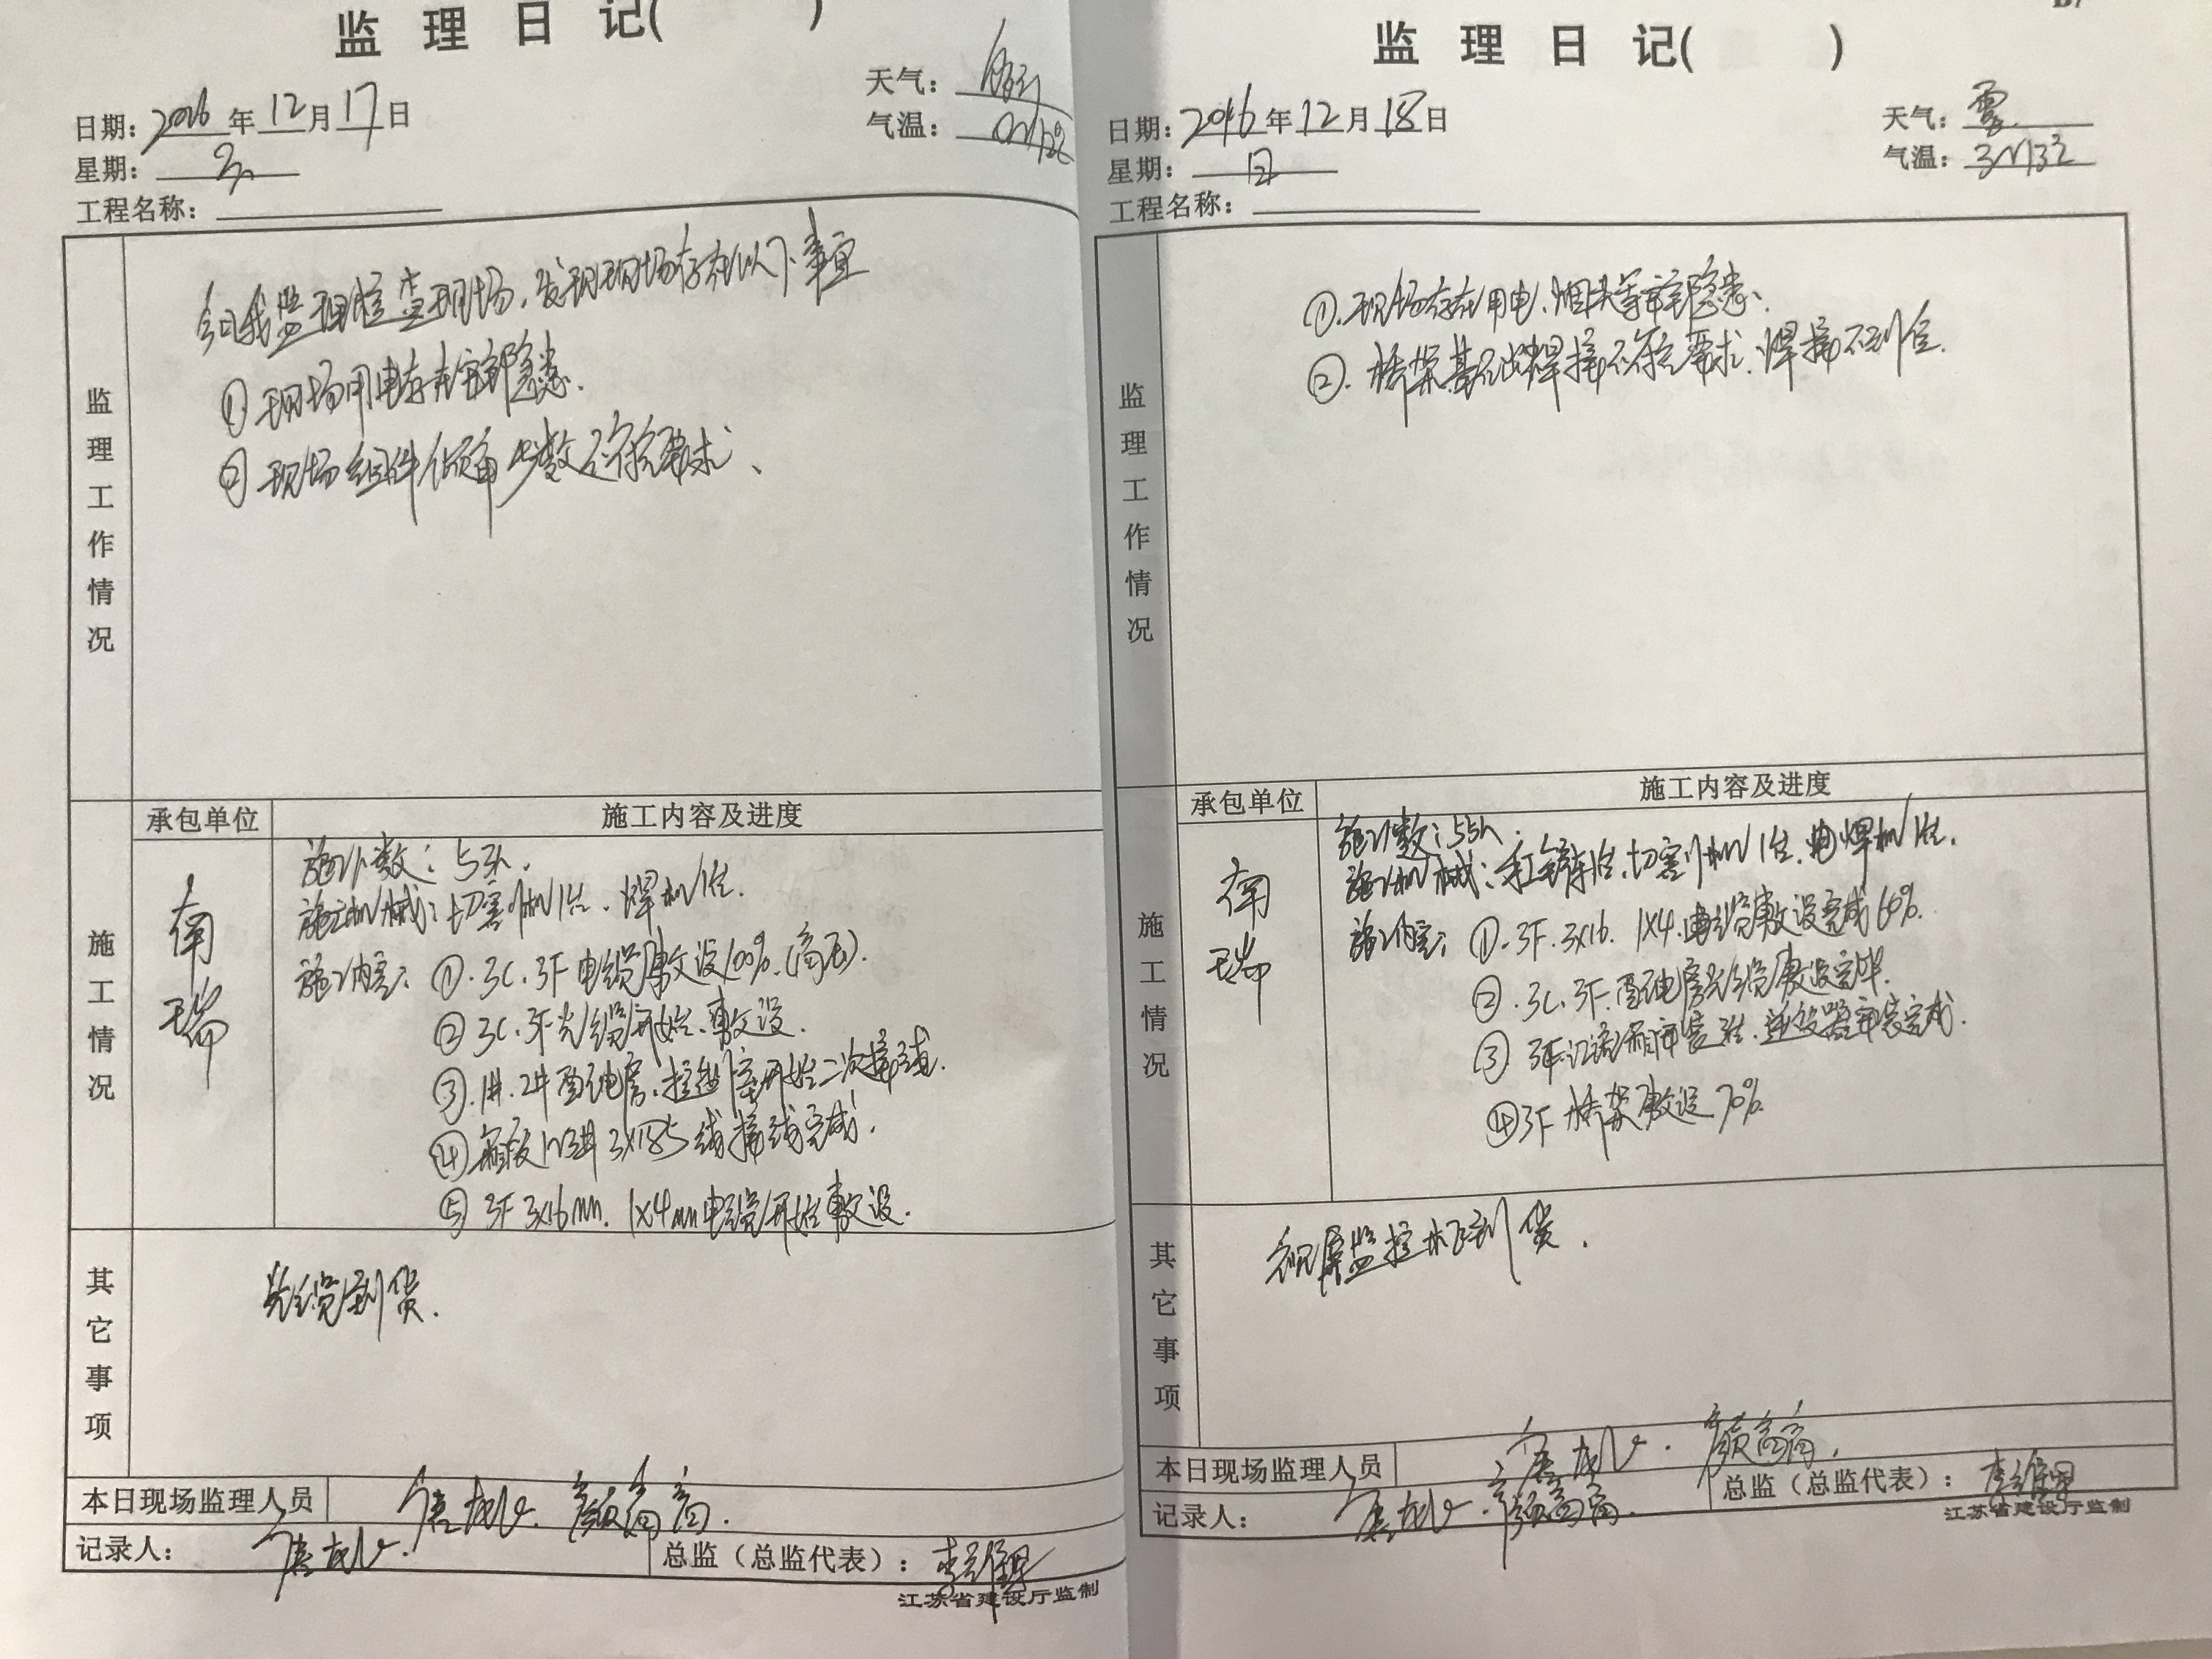 监 理 日 记( )
日期: 2016 年 12 月 17 日
天气:
气温:
星期: 六
工程名称:
监理工作情况
今日我监理检查现场,发现现场存在以下事宜
① 现场用电存在安全隐患.
② 现场组件倾角 少数不符合要求、
承包单位 施工内容及进度
施工情况
南瑞
施工人数: 53人.
施工机械: 切割机1台、焊机1台.
施工内容: ①.3C.3F电缆敷设100%.(高压).
② 3C.3F光缆开始敷设.
③.1#.2#配电房.控制室开始二次接线.
④ 箱变 3×185线接线完成.
⑤ 3F 3×16mm. 1×4mm电缆开始敷设.
其它事项
光缆到货.
本日现场监理人员
记录人:
总监(总监代表):
江苏省建设厅监制
B7
监 理 日 记( )
日期: 2016 年 12 月 18 日
天气:
气温:
星期: 日
工程名称:
监理工作情况
①.现场存在用电、烟头等安全隐患、
②.桥架基础焊接不符合要求、焊接不到位.
承包单位 施工内容及进度
施工情况
南瑞
施工人数: 55人.
施工机械: 1台、切割机1台、电焊机1台.
施工内容: ①.3F.3×16. 1×4.电缆敷设完成60%.
②.3C.3F.配电房光缆敷设完成.
③ 3F 逆变器安装完成.
④3F 桥架敷设70%.
其它事项
监控 到货.
本日现场监理人员
记录人:
总监(总监代表):
江苏省建设厅监制